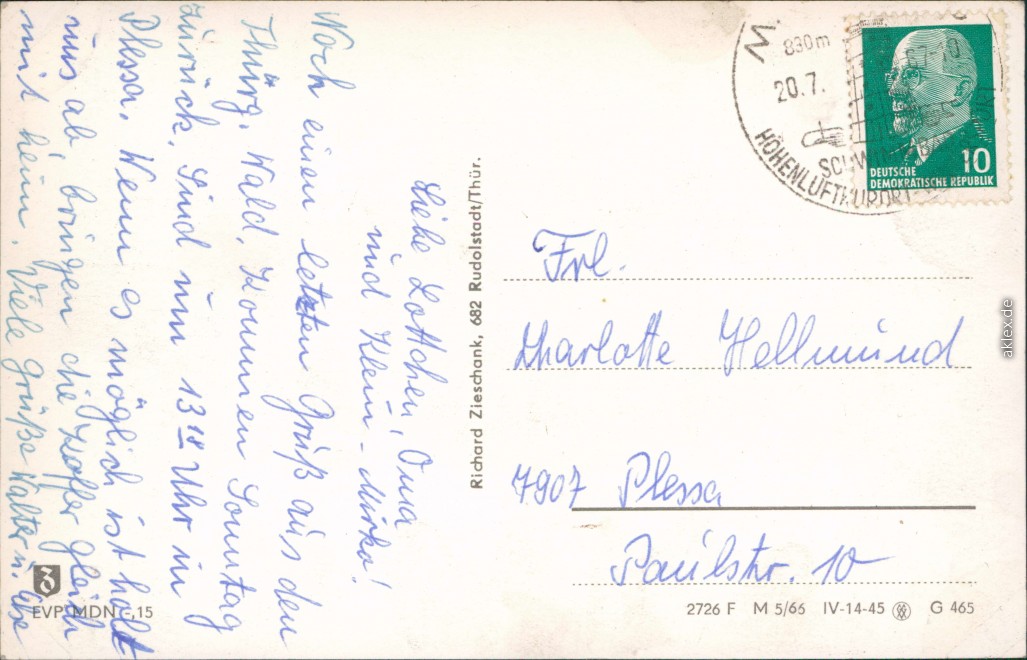 Liebe Lottchen, Oma
und Klein-Mirko!
Noch einen letzten Gruß aus den
Thürg. Wald. Kommen Sonntag
zurück. Sind um 13 18 Uhr in
Plessa. Wenn es möglich ist holt
uns ab, bringen die Koffer gleich
mit heim. Viele Grüße Walter u.
EVP MDN -.15
Richard Zieschank, 682 Rudolstadt/Thür.
830m
20.7.
HÖHENLUFTKURORT
DEUTSCHE
DEMOKRATISCHE REPUBLIK
10
Frl.
Charlotte Hellmund
7907 Plessa
Paulstr. 10
2726 F M 5/66 IV-14-45 G 465
aklex.de